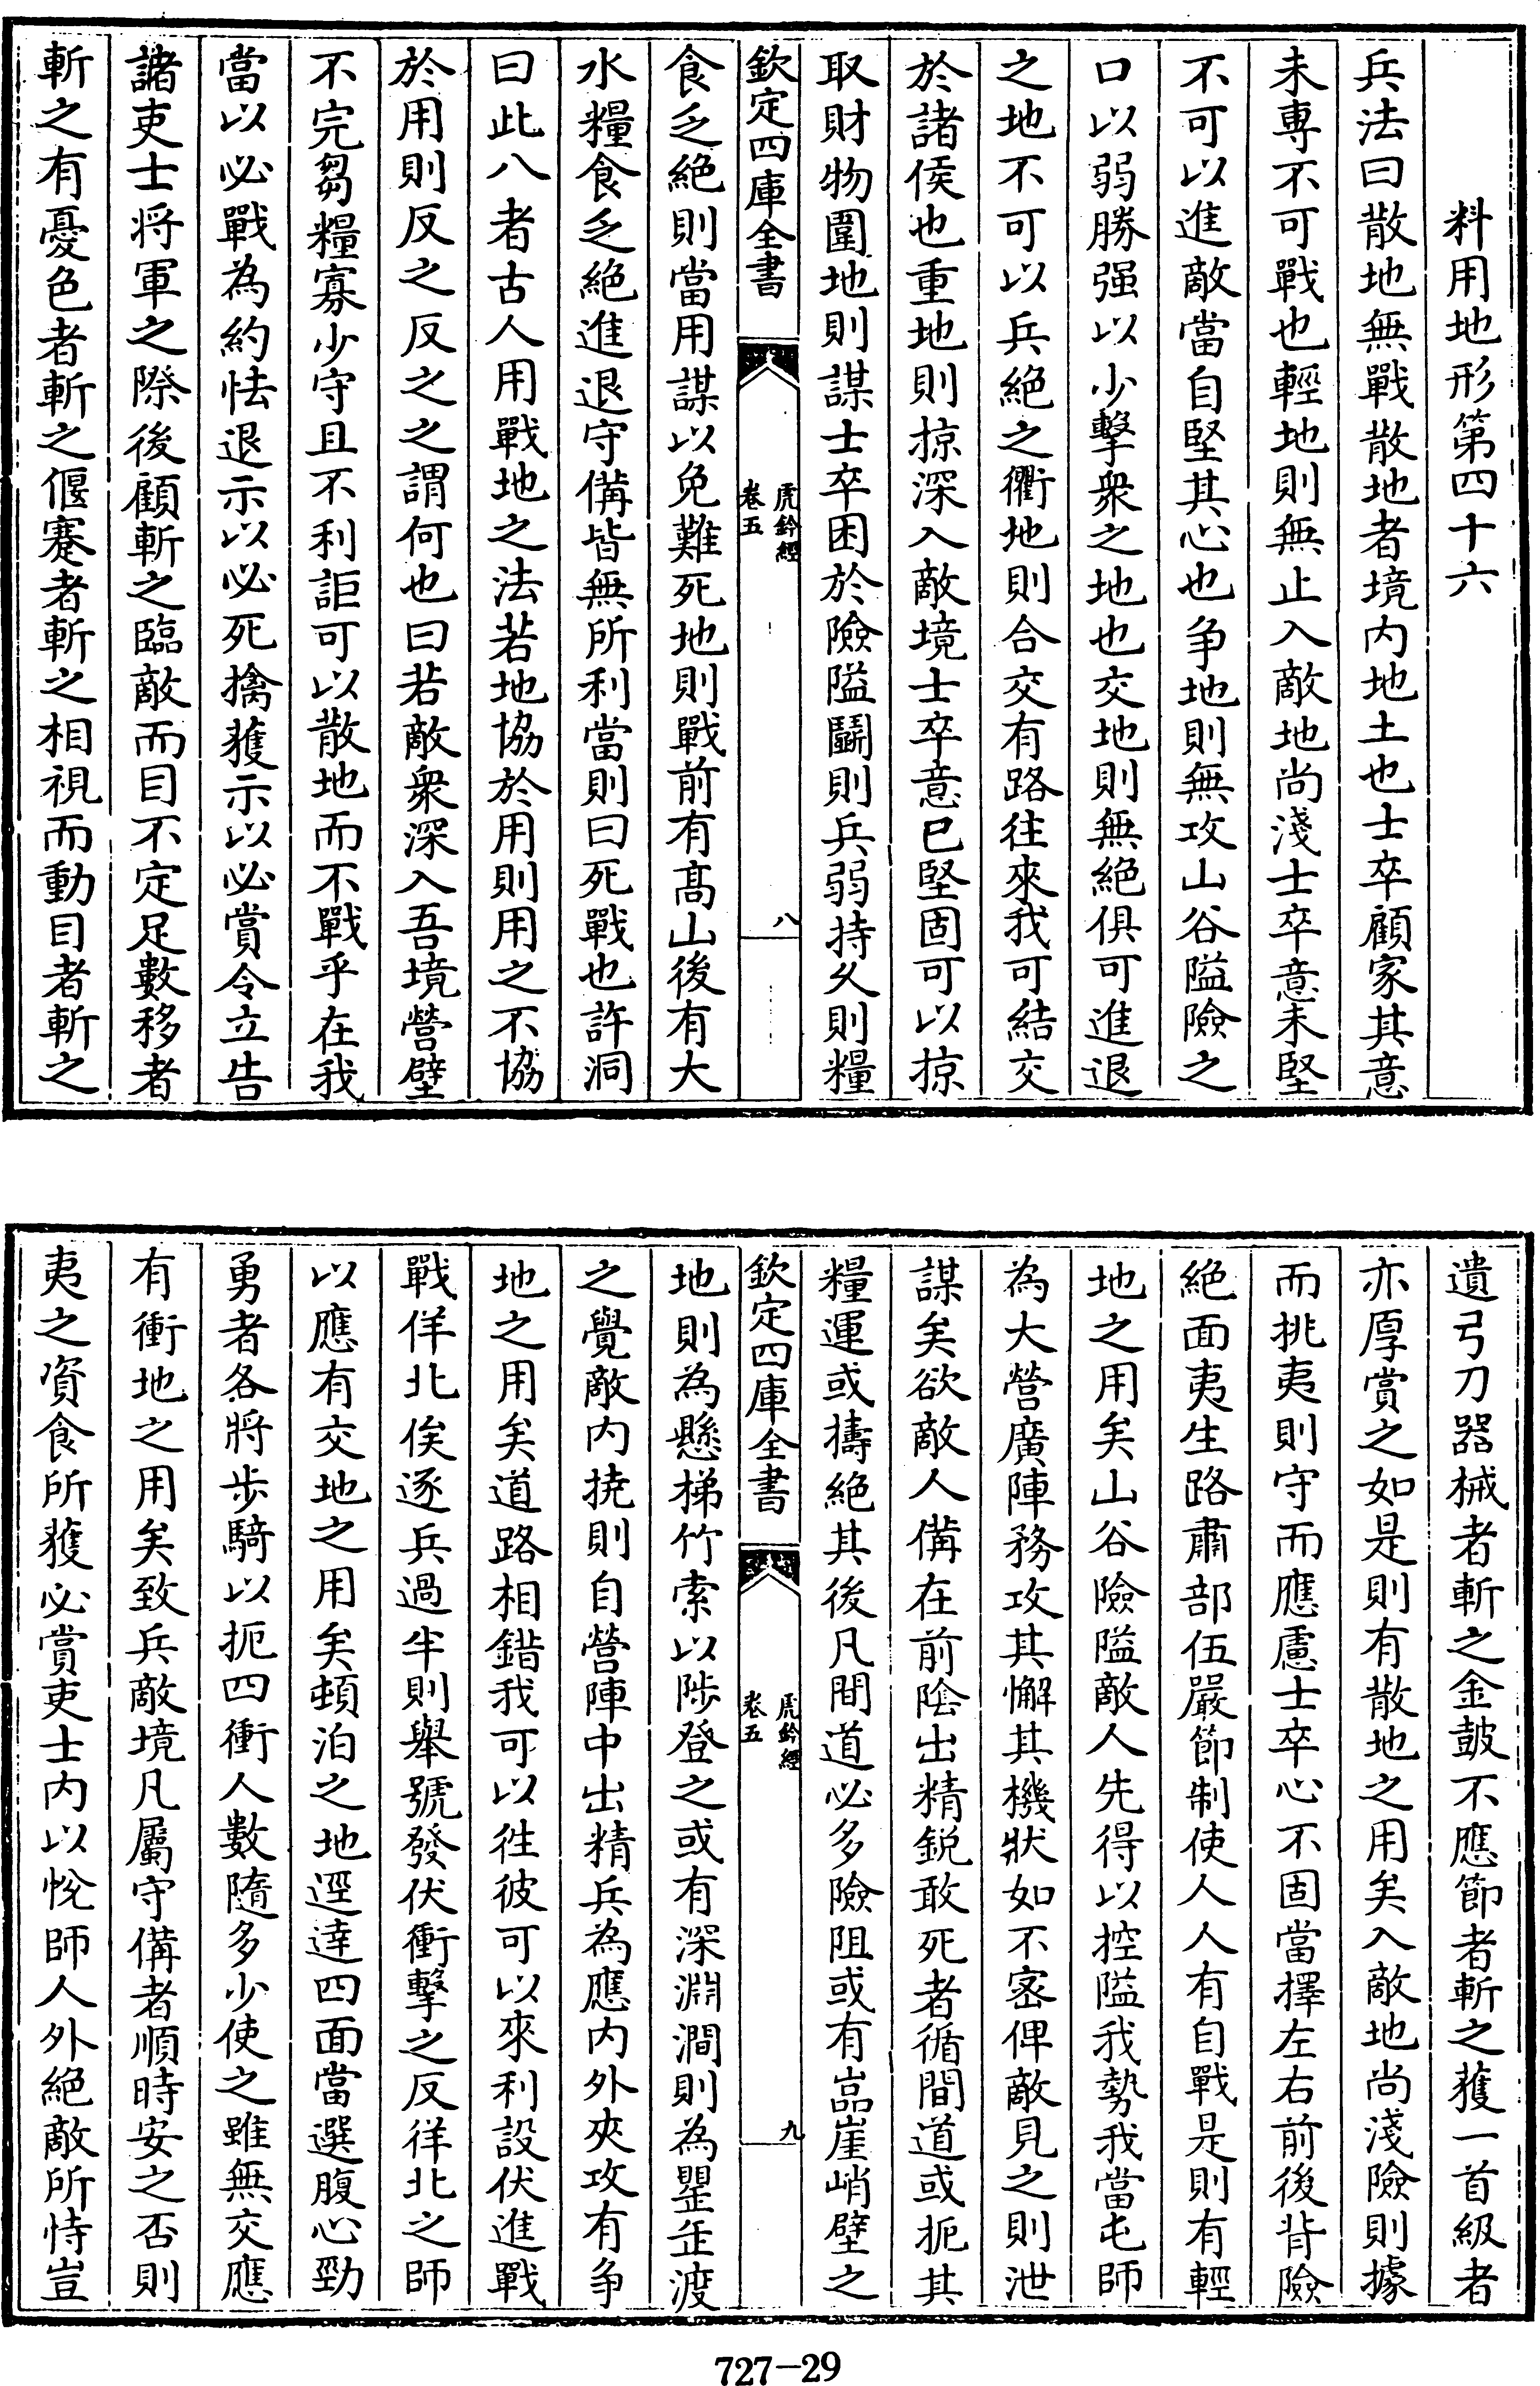 料用地形第四十六
兵法曰散地無戰散地者境内地土也士卒顧家其意
未專不可戰也輕地則無止入敵地尚淺士卒意未堅
不可以進敵當自堅其心也争地則無攻山谷隘險之
口以弱勝强以少擊衆之地也交地則無絕俱可進退
之地不可以兵絕之衢地則合交有路往來我可結交
於諸侯也重地則掠深入敵境士卒意已堅固可以掠
取財物圍地則謀士卒困於險隘鬭則兵弱持久則糧
欽定四庫全書
虎鈐經
卷五
八
食乏絕則當用謀以免難死地則戰前有髙山後有大
水糧食乏絕進退守備皆無所利當則曰死戰也許洞
曰此八者古人用戰地之法若地協於用則用之不協
於用則反之反之之謂何也曰若敵衆深入吾境營壁
不完芻糧寡少守且不利詎可以散地而不戰乎在我
當以必戰為約怯退示以必死擒獲示以必賞令立告
諸吏士将軍之際後顧斬之臨敵而目不定足數移者
斬之有憂色者斬之偃蹇者斬之相視而動目者斬之
遺弓刀器械者斬之金鼓不應節者斬之獲一首級者
亦厚賞之如是則有散地之用矣入敵地尚淺險則據
而挑夷則守而應慮士卒心不固當擇左右前後背險
絕面夷生路肅部伍嚴節制使人人有自戰是則有輕
地之用矣山谷險隘敵人先得以控隘我勢我當屯師
為大營廣陣務攻其懈其機狀如不宻俾敵見之則泄
謀矣欲敵人備在前陰出精鋭敢死者循間道或扼其
糧運或擣絕其後凡間道必多險阻或有嵓崖峭壁之
欽定四庫全書
虎鈐經
卷五
九
地則為懸梯竹索以陟登之或有深淵澗則為罌缶渡
之覺敵内撓則自營陣中出精兵為應内外夾攻有争
地之用矣道路相錯我可以徃彼可以來利設伏進戰
戰佯北俟逐兵過半則舉號發伏衝擊之反徉北之師
以應有交地之用矣頓泊之地逕達四面當選腹心勁
勇者各將步騎以扼四衝人數隨多少使之雖無交應
有衝地之用矣致兵敵境凡屬守備者順時安之否則
夷之資食所獲必賞吏士内以悅師人外絕敵所恃豈
727-29